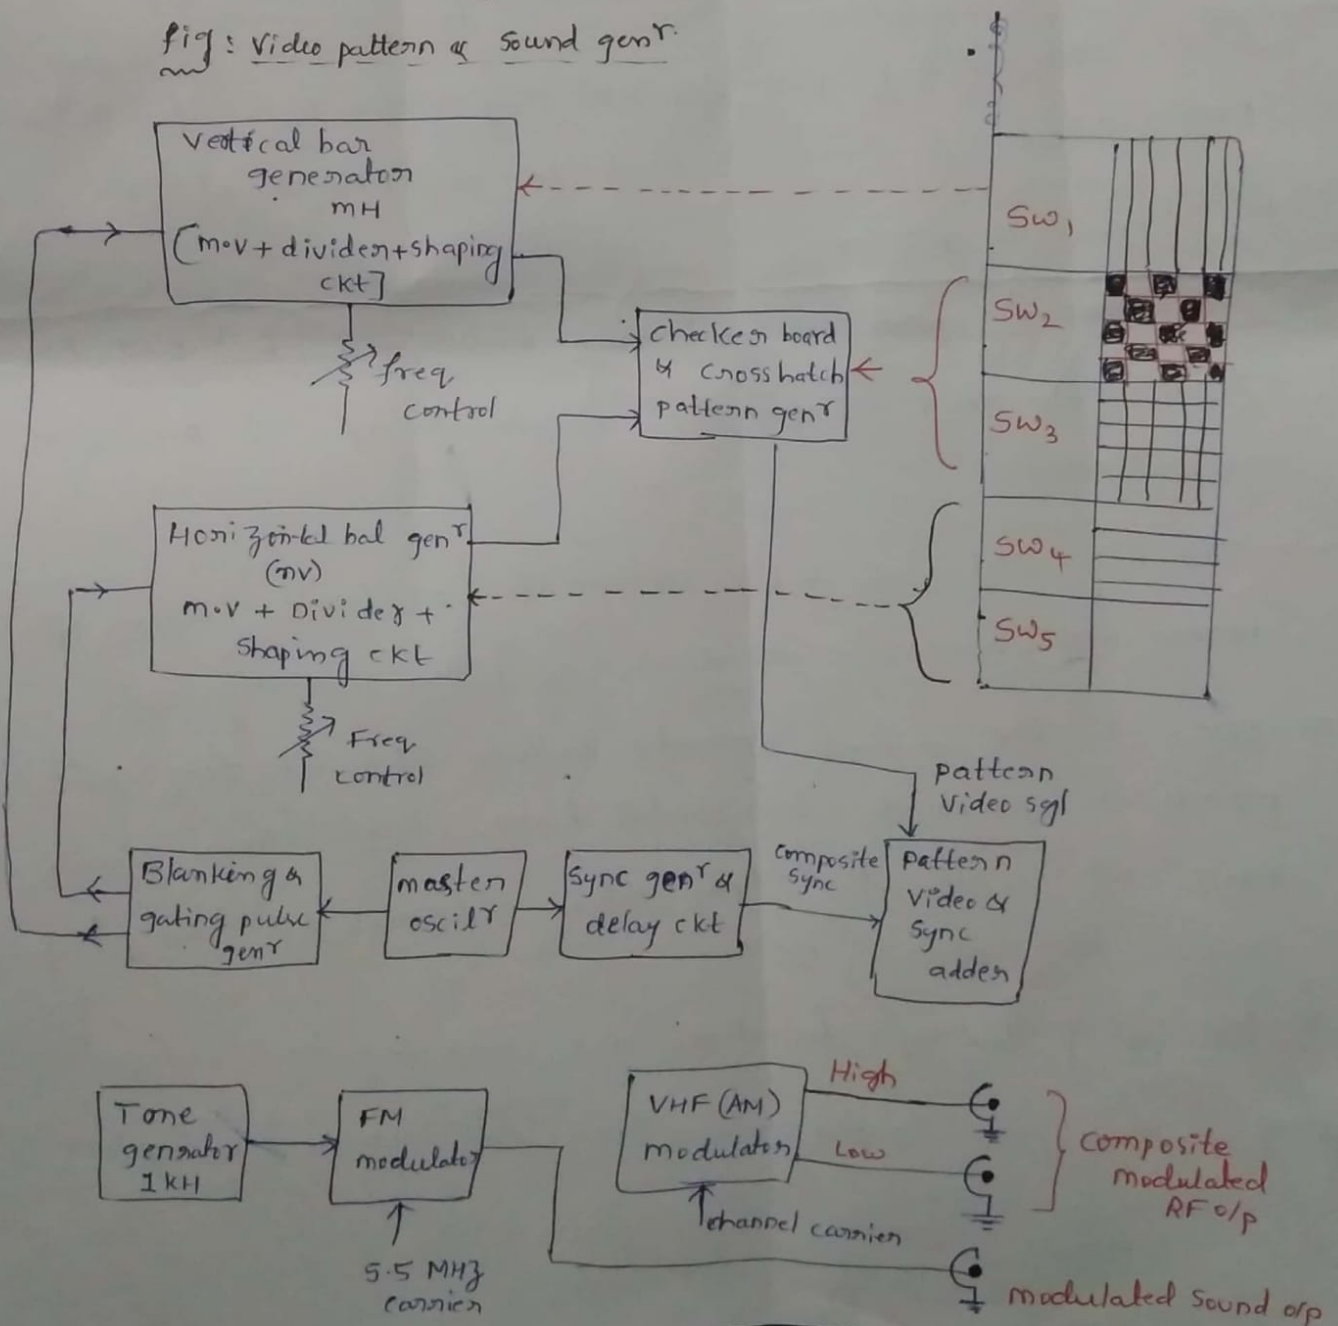 fig : Video pattern & Sound genr.
Vertical bar
generator
mH
(m.v + divider + shaping
ckt]
freq
control
checker board
& crosshatch
pattern genr
SW1
SW2
SW3
SW4
SW5
Horizontal bal genr
(nv)
m.v + Divider +
Shaping ckt
Freq
control
pattern
Video sgl
Blanking &
gating pulse
genr
master
oscilr
Sync genr &
delay ckt
composite
Sync
pattern
Video &
Sync
adder
Tone
genrator
1 kH
FM
modulator
5.5 MHz
carrier
VHF (AM)
modulator
High
Low
channel carrier
composite
modulated
RF o/p
modulated sound o/p